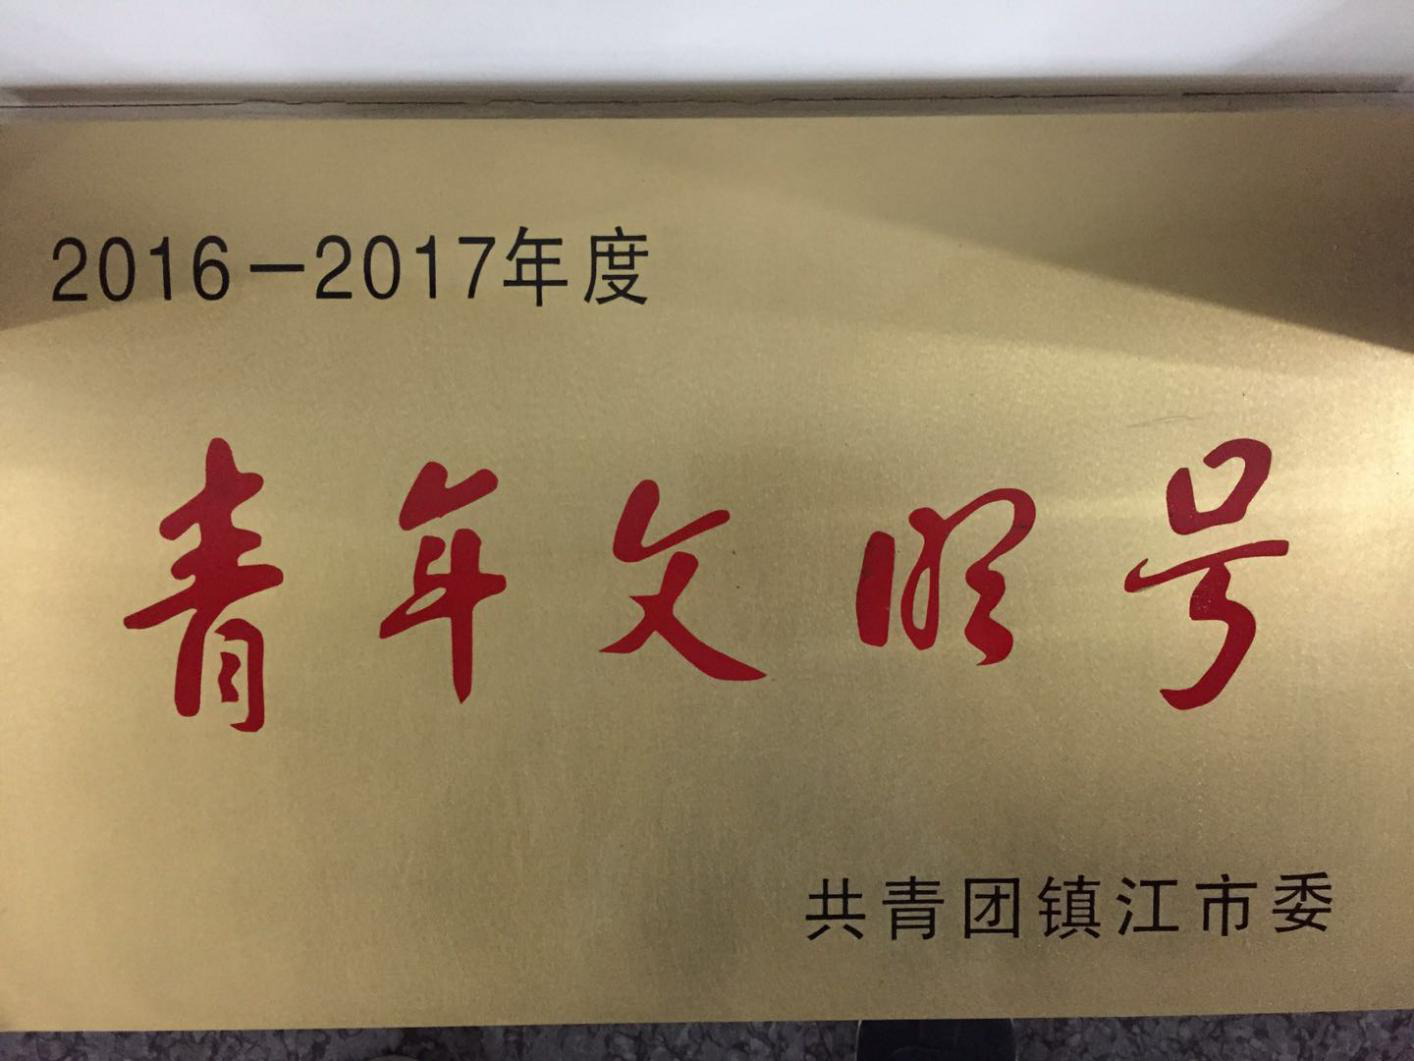 2016－2017年度
青年文明号
共青团镇江市委